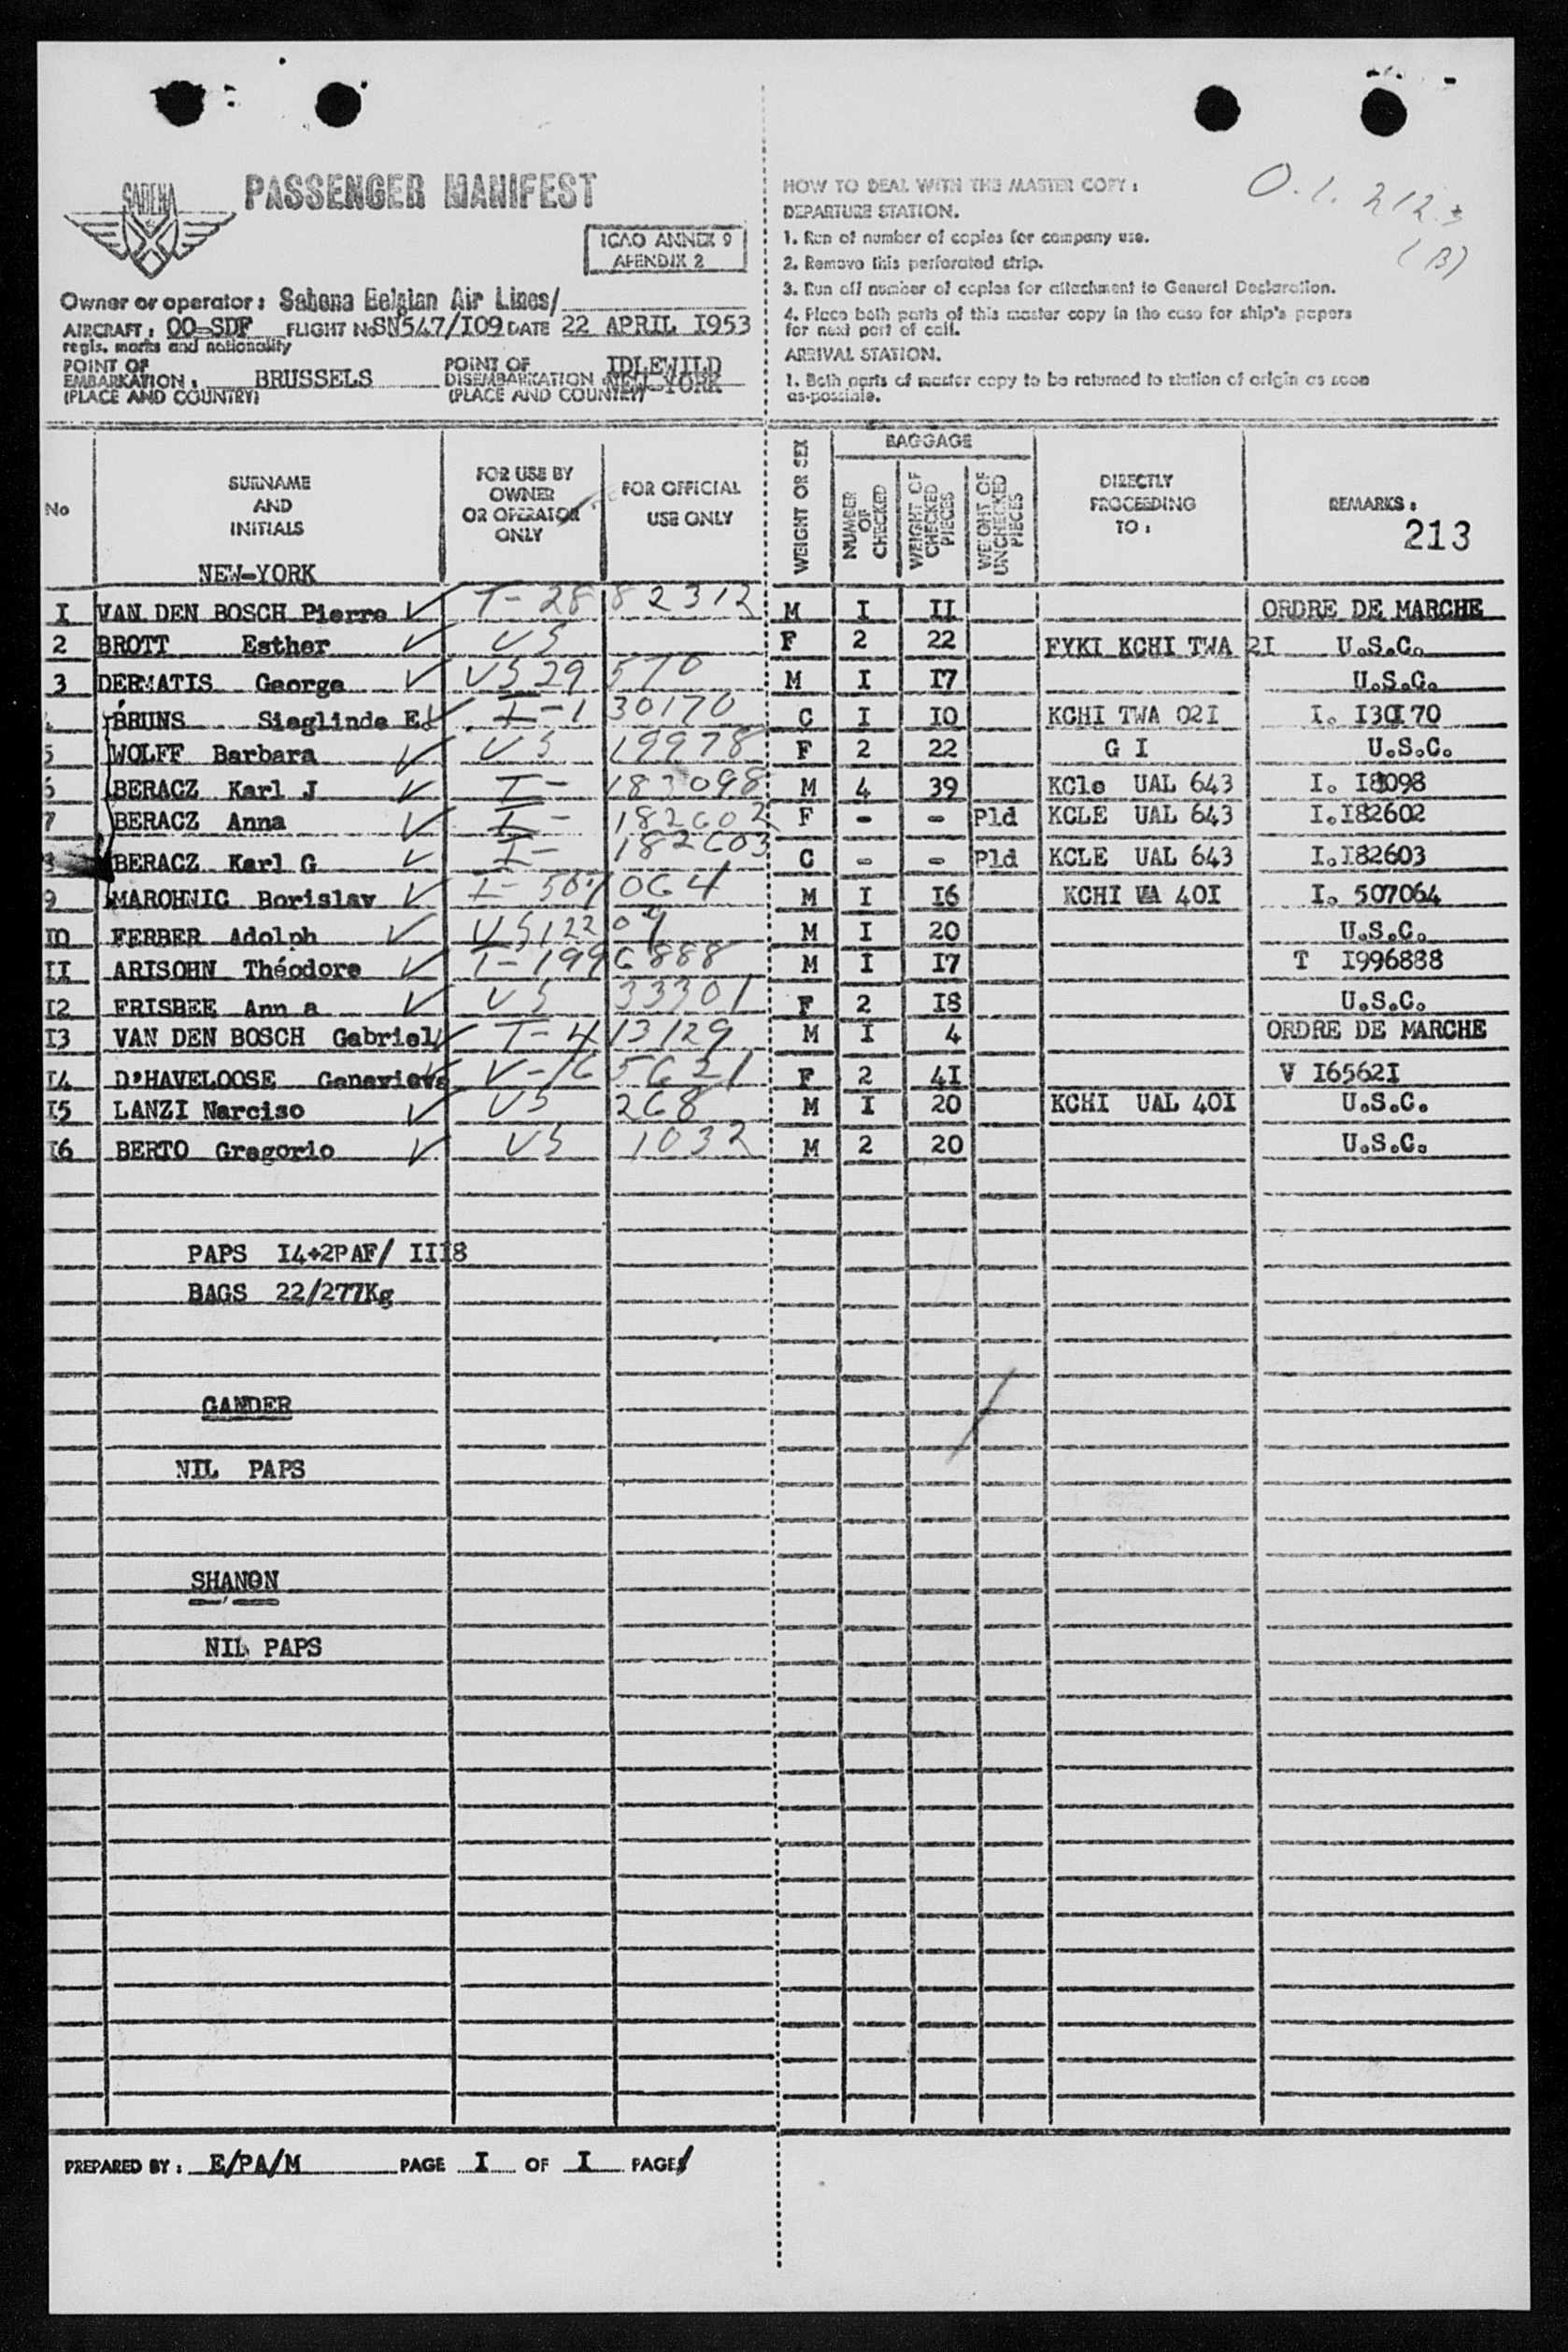 SABENA
PASSENGER MANIFEST
ICAO ANNEX 9
APENDIX 2
Owner or operator: Sabena Belgian Air Lines/
AIRCRAFT: OO-SDF FLIGHT No SN547/I09 DATE 22 APRIL I953
regis. marks and nationality
POINT OF EMBARKATION: BRUSSELS
(PLACE AND COUNTRY)
POINT OF DISEMBARKATION IDLEWILD NEW-YORK
(PLACE AND COUNTRY)
HOW TO DEAL WITH THE MASTER COPY:
O.1. 212
(B)
DEPARTURE STATION.
1. Run of number of copies for company use.
2. Remove this perforated strip.
3. Run off number of copies for attachment to General Declaration.
4. Place both parts of this master copy in the case for ship's papers
for next port of call.
ARRIVAL STATION.
1. Both parts of master copy to be returned to station of origin as soon
as possible.
No SURNAME AND INITIALS FOR USE BY OWNER OR OPERATOR ONLY FOR OFFICIAL USE ONLY WEIGHT OR SEX BAGGAGE NUMBER OF CHECKED WEIGHT OF CHECKED PIECES WEIGHT OF UNCHECKED PIECES DIRECTLY PROCEEDING TO: REMARKS:
213
NEW-YORK
I VAN DEN BOSCH Pierre T-28 82312 M I II ORDRE DE MARCHE
2 BROTT Esther US F 2 22 FYKI KCHI TWA 2I U.S.C.
3 DERMATIS George US29 570 M I I7 U.S.C.
BRUNS Sieglinde E. I-1 30170 C I I0 KCHI TWA 02I I. I30I70
5 WOLFF Barbara US 19978 F 2 22 G I U.S.C.
6 BERACZ Karl J I- 183098 M 4 39 KCle UAL 643 I. I8098
7 BERACZ Anna I- 182602 F - - Pld KCLE UAL 643 I.I82602
BERACZ Karl G I- 182603 C - - Pld KCLE UAL 643 I.I82603
9 MAROHNIC Borislav I-507 064 M I I6 KCHI UA 40I I. 507064
I0 FERBER Adolph US122 09 M I 20 U.S.C.
II ARISOHN Théodore T-199 6888 M I I7 T I996888
I2 FRISBEE Ann a US 33301 F 2 I8 U.S.C.
I3 VAN DEN BOSCH Gabriel T-4 13129 M I 4 ORDRE DE MARCHE
I4 D'HAVELOOSE Genevieve V-16 5621 F 2 4I V I6562I
I5 LANZI Narciso US 268 M I 20 KCHI UAL 40I U.S.C.
I6 BERTO Gregorio US 1032 M 2 20 U.S.C.
PAPS I4+2PAF/ III8
BAGS 22/277Kg
GANDER
NIL PAPS
SHANON
NIL PAPS
PREPARED BY: E/PA/M PAGE I OF I PAGE